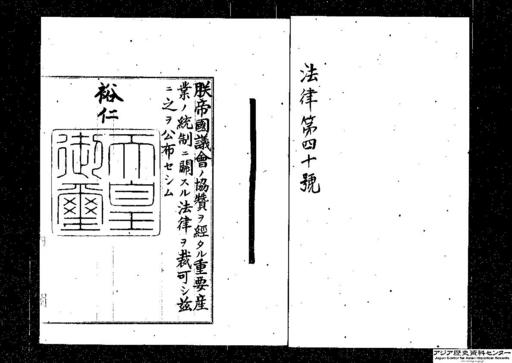 法律第四十號
朕帝國議會ノ協贊ヲ經タル重要産
業ノ統制ニ關スル法律ヲ裁可シ玆
ニ之ヲ公布セシム
裕仁
天皇
御璽
アジア歴史資料センター
Japan Center for Asian Historical Records